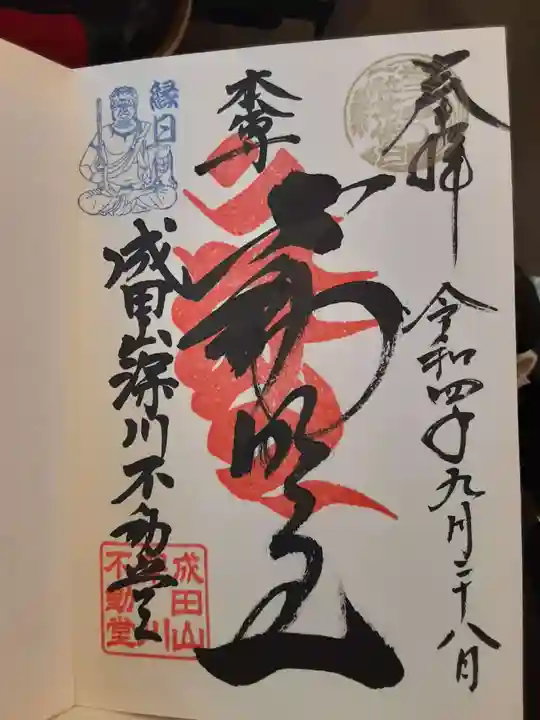 奉拝
令和四年九月二十八日
本尊
不動明王
縁日
成田山深川不動堂
成田山
深川
不動堂